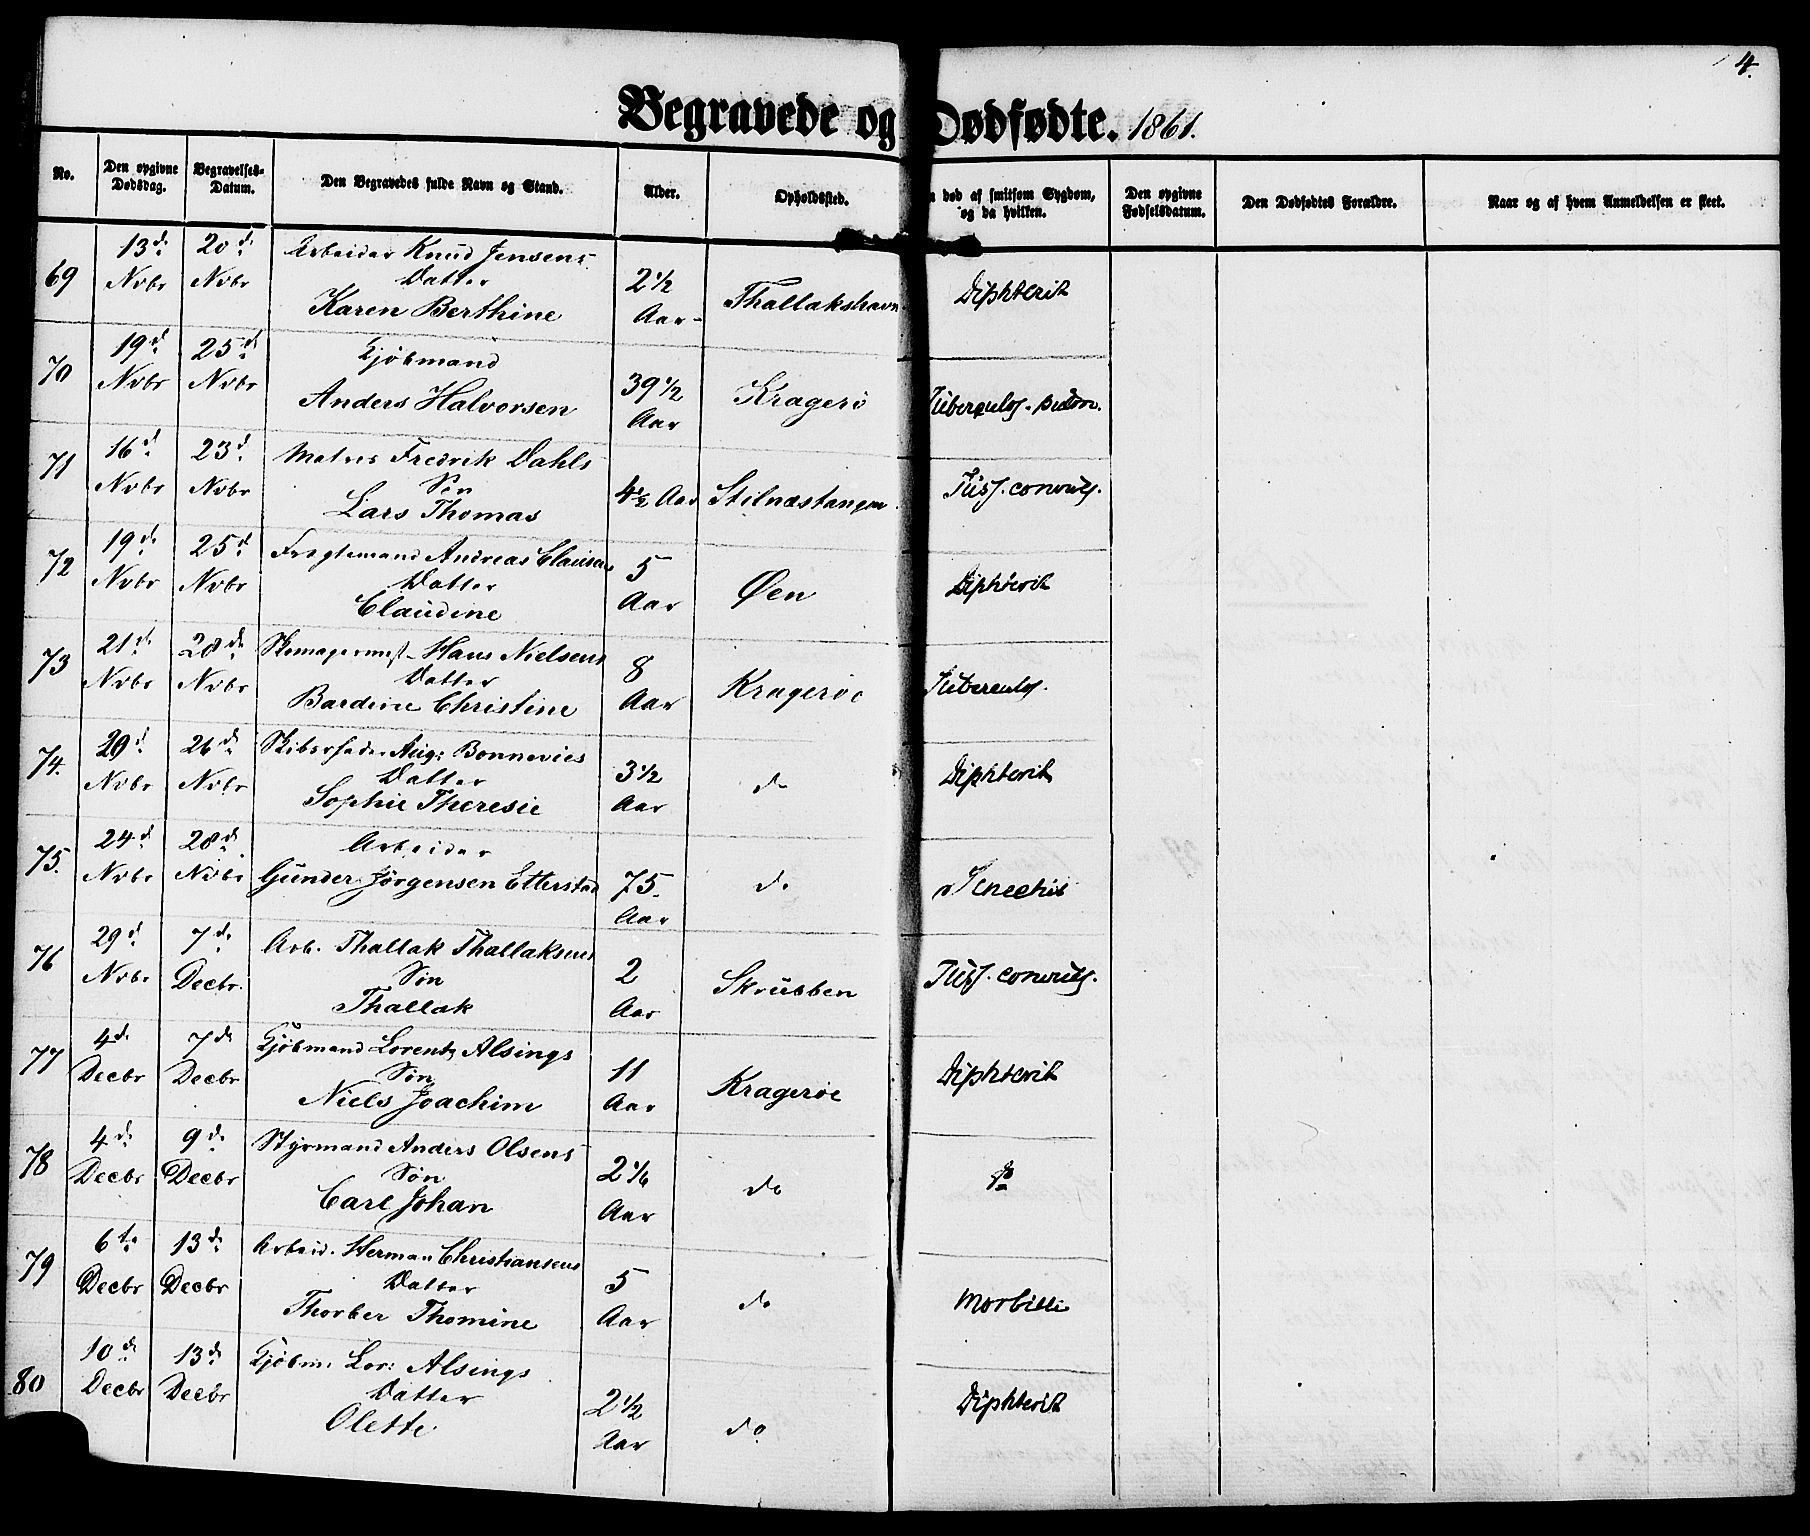 4.
Begravede og Dødfødte. 1861.
No. | Den opgivne Dødsdag. | Begravelses-Datum. | Den Begravedes fulde Navn og Stand. | Alder. | Opholdssted. | død af smitsom Sygdom, og da hvilken. | Den opgivne Fødselsdatum. | Den Dødfødtes Forældre. | Naar og af hvem Anmeldelsen er skeet.
69 | 13d Nvbr | 20d Nvbr | Arbeider Knud Jensens Datter Karen Berthine | 2 1/2 Aar | Thallakshavn | Diphterit
70 | 19d Nvbr | 25d Nvbr | Kjöbmand Anders Halvorsen | 39 1/2 Aar | Kragerö | Tuberculs.
71 | 16d Nvbr | 23d Nvbr | Matros Fredrik Dahls Søn Lars Thomas | 4 1/2 Aar | Stilnæstangen | Tuss. convuls.
72 | 19d Nvbr | 25d Nvbr | Fragtemand Andreas Clausens Datter Claudine | 5 Aar | Øen | Diphterit
73 | 21d Nvbr | 28d Nvbr | Skomagermest. Hans Nielsens Datter Bardine Christine | 8 Aar | Kragerøe | Tuberculs.
74. | 20d Nvbr | 26d Nvbr | Skibsreder Aug: Bonnevies Datter Sophie Theresie | 3 1/2 Aar | do | Diphterit
75. | 24d Nvbr | 28d Nvbr | Arbeider Gunder Jörgensen Etterstad | 75 Aar | do
76 | 29d Nvbr | 7d Decbr. | Arb. Thallak Thallaksens Søn Thallak | 2 Aar | Skrubben | Tuss. convuls.
77 | 4d Decbr | 7d Decbr | Kjöbmand Lorentz Alsings Søn Niels Joachim | 11 Aar | Kragerøe | Diphterit
78 | 4d Decbr | 9d Decbr | Styrmand Anders Olsens Søn Carl Johan | 2 1/6 Aar | do | do
79 | 6te Decbr | 13d Decbr | Arbeid. Herman Christiansens Datter Thorber Thomine | 5 Aar | do | Morbilli
80 | 10d Decbr | 13d Decbr | Kjöbm. Lor: Alsings Datter Olette | 2 1/2 Aar | do | Diphterit